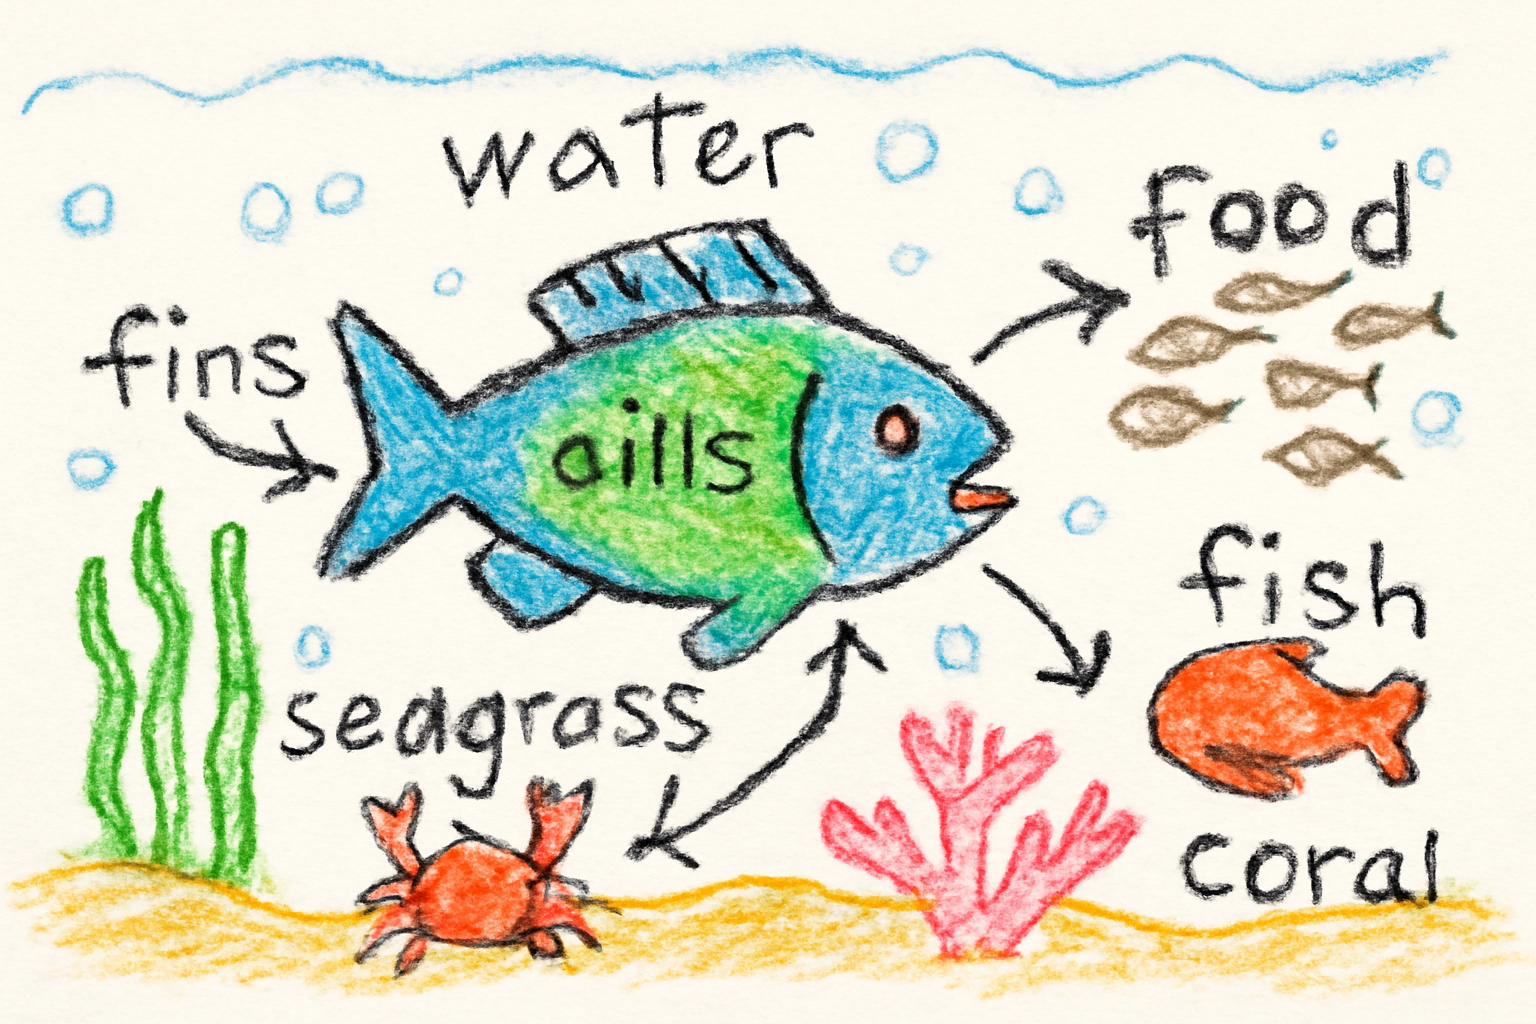 water
food
fins
aills
fish
seagrass
coral